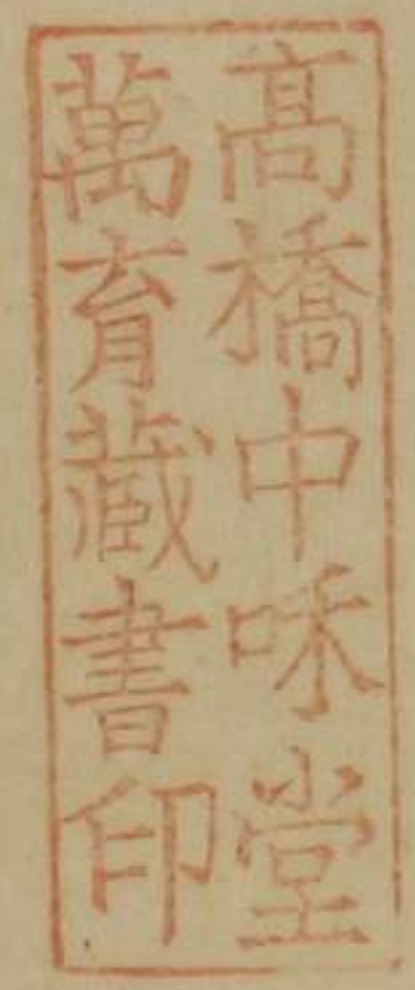 髙橋中咊堂
萬育藏書印